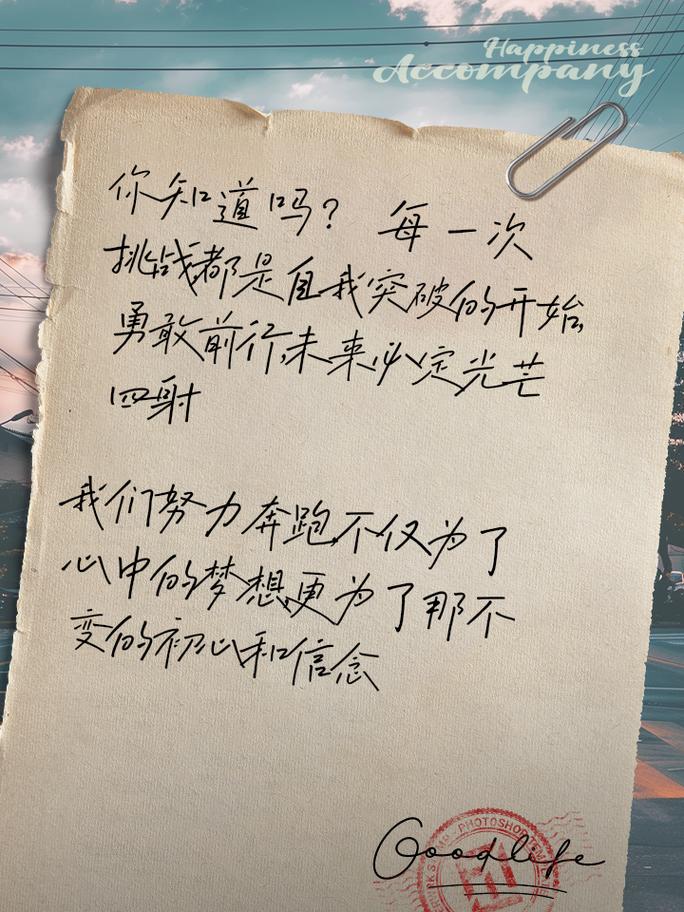 Happiness
Accompany
你知道吗? 每一次
挑战都是自我突破的开始
勇敢前行,未来必定光芒
四射
我们努力奔跑,不仅为了
心中的梦想,更为了那不
变的初心和信念
PHOTOSHOP
Goodlife